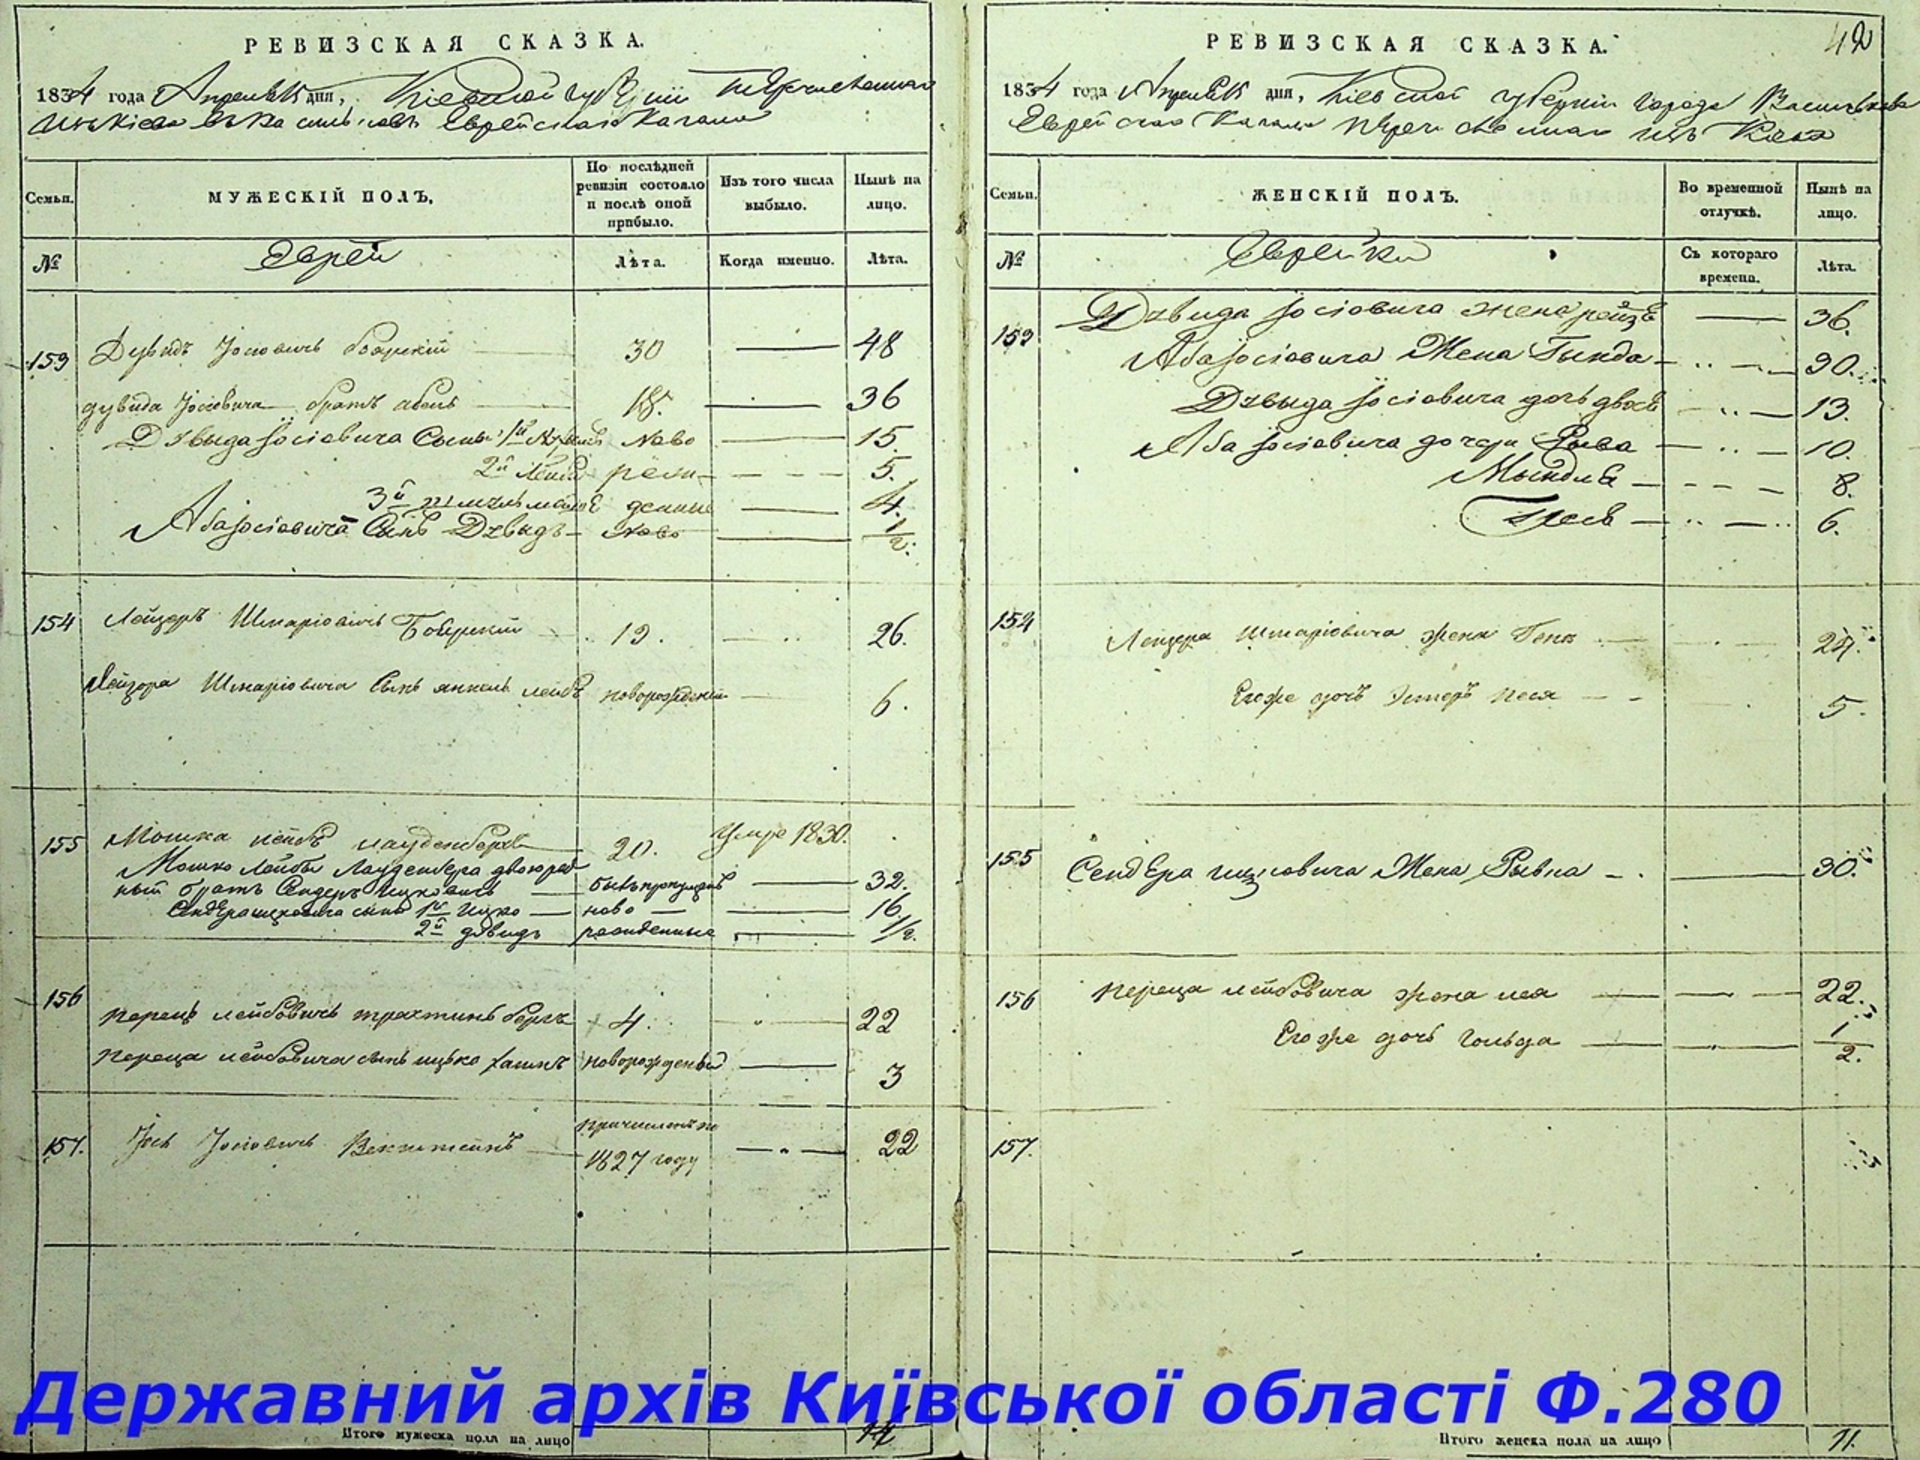 РЕВИЗСКАЯ СКАЗКА.
1834 года Апреля 15 дня, Кіевской губерніи Перечисленнаго
изъ Кіева въ Васильковъ Еврейскаго Кагала
Семьи. МУЖЕСКІЙ ПОЛЪ. По послѣдней ревизіи состояло и послѣ оной прибыло. Изъ того числа выбыло. Нынѣ на лицо.
№ Еврей Лѣта. Когда именно. Лѣта.
153 Дувидъ Іосіовичъ боярскій 30 — 48
дувида Іосіовича братъ абель 18. — 36
Дзвыда Іосіовича Сыны 1й Ново — 15.
2й рожи- — 5.
3й денные — 4.
Аба Іосіовича Сынъ Дзвыдъ — ново — 1/2.
154 Лейзеръ Шмаріовичъ Боярскій 19. 26.
Лейзора Шмаріовича Сынъ янкель лейбъ новорожденный — 6.
155 Мошка лейбъ лауденберхъ 20. Умре 1830.
Мошко Лейбы Лауденберга двоюрод
ный братъ Сендеръ Ицковичъ — былъ пропущенъ — 32.
Сендера ицковича сыны 1й Ицко — ново — 16
2й дувидъ рожденные — 1/2.
156 перецъ лейбовичъ трахтинъбергъ 4. — 22
переца лейбовича сынъ ицько новорожденый — 3
157. Іось Іосіовичъ причисленъ по 1827 году — 22
Итого мужеска пола на лицо 14
РЕВИЗСКАЯ СКАЗКА. 42
1834 года Апреля 15 дня, Кіевской губерніи города Василькова
Еврейскаго Кагала перечисленнаго изъ Кіева
Семьи. ЖЕНСКІЙ ПОЛЪ. Во временной отлучкѣ. Нынѣ на лицо.
№ Еврейки Съ котораго времени. Лѣта.
153 Дзвида Іосіовича жена рейзѣ — 36.
Аба Іосіовича Жена Гында — 30.
Дзвыда Іосіовича дочь двосѣ — 13.
Аба Іосіовича дочери Рыва — 10.
Мындля — 8.
6.
154 Лейзера Шмаріовича жена Геня 24.
Егоже дочь Эстеръ песя — 5.
155 Сендера ицковича Жена Рывка — 30.
156 переца лейбовича жена лея — 22.
Егоже дочь гольда — 1/2.
157.
Итого женска пола на лицо 11.
Державний архів Київської області Ф.280